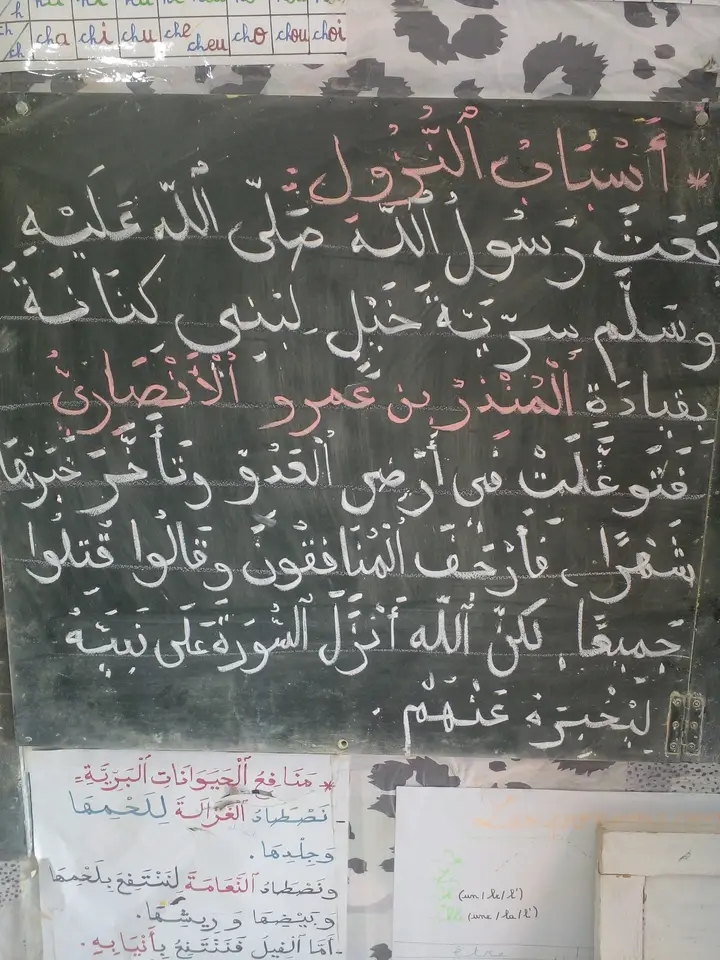 ch cha chi chu che cheu cho chou choi
* أَسْبَابُ ٱلنُّزُولِ :
بَعَثَ رَسُولُ ٱللَّهِ صَلَّى ٱللَّهُ عَلَيْهِ
وَسَلَّم سرِّيَّةَ خَيْلٍ لِبَنِي كِنَانَةَ
بِقِيادَةِ ٱلْمُنْذِرْ بن عَمرو ٱلْأَنْصَارِيُّ
فَتَوغَّلَتْ فِي أَرْضِ ٱلْعَدُوِّ وَتَأَخَّرَ خَبَرُهَا
شَهْرًا، فَأَرْجَفَ ٱلْمُنَافِقُونَ وَقَالُوا قُتِلُوا
جَمِيعًا، لَكنَّ ٱللَّه أَنْزَلَ ٱلسُّورَةَ عَلَى نَبِيِّهُ
لِيُخْبِرَهُ عَنْهُمْ.
* مَنَافِعُ ٱلْحَيَوَانَاتِ ٱلْبَرِيَّةِ =
- نَصْطَادُ ٱلْغَزَالَةَ لِلَحْمِهَا
وَجِلْدِهَا .
وَنَصْطَادُ ٱلنَّعَامَةَ لِنَنْتَفِعَ بِلَحْمِهَا
وَبَيْضِهَا وَرِيشِهَا.
- أَمَّا ٱلْفِيلَ فَنَنْتَفِعُ بِأَنْيَابِهِ .
(un / le / l')
(une / la / l')
être